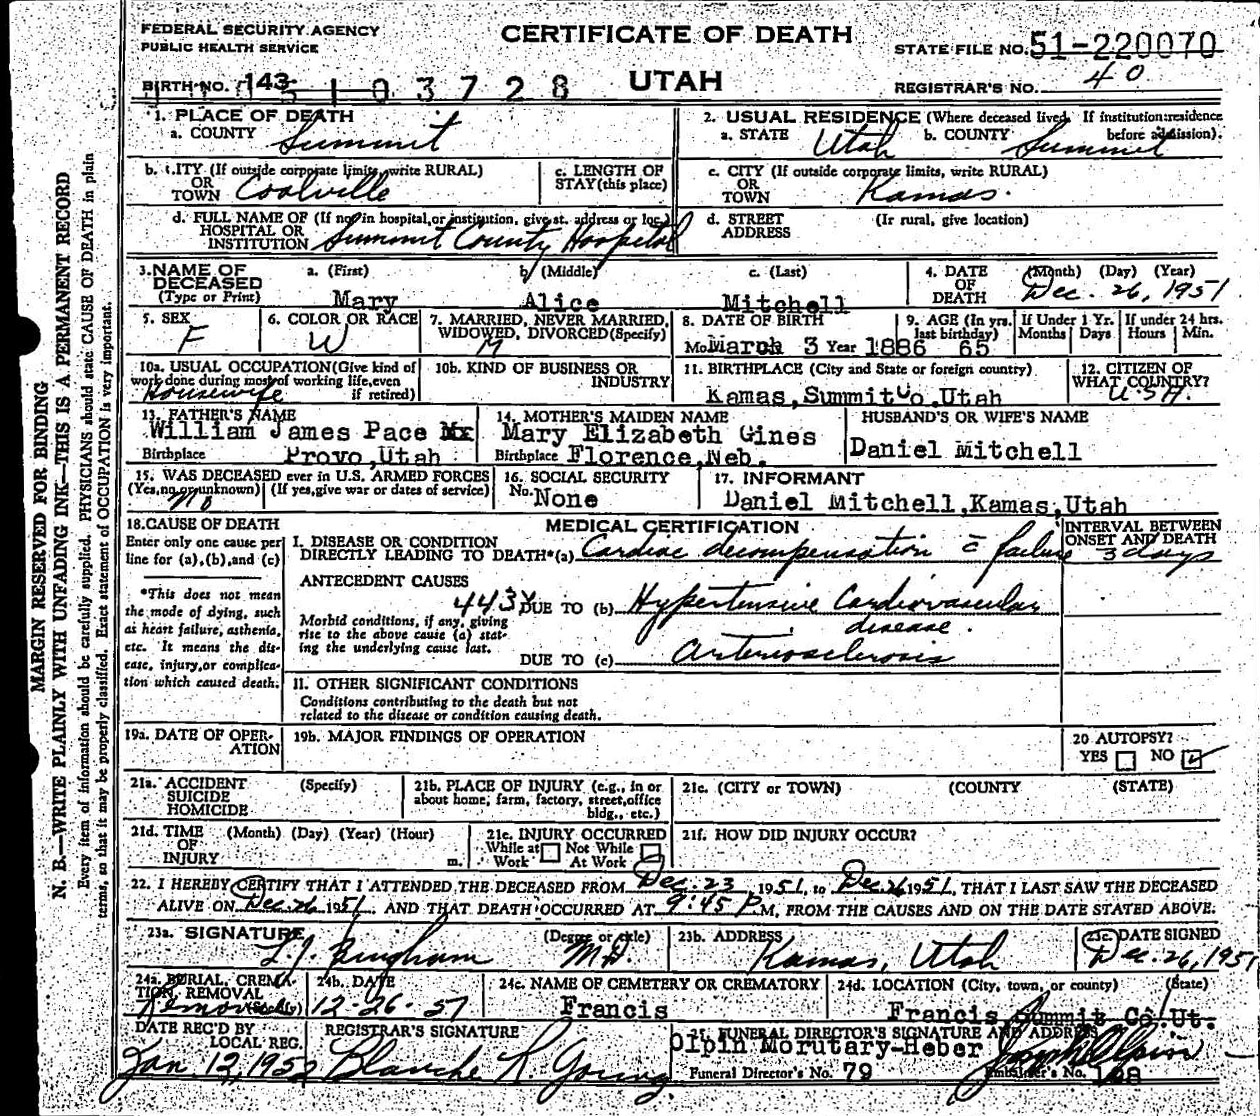 FEDERAL SECURITY AGENCY
PUBLIC HEALTH SERVICE
CERTIFICATE OF DEATH
STATE FILE NO. 51-220070
BIRTH NO. 143
103728
UTAH
REGISTRAR'S NO. 40
1. PLACE OF DEATH
a. COUNTY Summit
2. USUAL RESIDENCE (Where deceased lived. If institution:residence before admission).
a. STATE Utah b. COUNTY Summit
b. CITY (If outside corporate limits, write RURAL)
OR
TOWN Coalville
c. LENGTH OF
STAY (this place)
c. CITY (If outside corporate limits, write RURAL)
OR
TOWN Kamas.
d. FULL NAME OF (If not in hospital, or institution, give st. address or loc.)
HOSPITAL OR
INSTITUTION Summit County Hospital
d. STREET
ADDRESS
(Ir rural, give location)
3. NAME OF
DECEASED
(Type or Print)
a. (First) b. (Middle) c. (Last)
Mary Alice Mitchell
4. DATE
OF
DEATH
(Month) (Day) (Year)
Dec. 26, 1951
5. SEX
F
6. COLOR OR RACE
W
7. MARRIED, NEVER MARRIED,
WIDOWED, DIVORCED (Specify)
M
8. DATE OF BIRTH
March 3 Year 1886
9. AGE (In yrs. last birthday)
65
If Under 1 Yr.
Months Days
If under 24 hrs.
Hours Min.
10a. USUAL OCCUPATION (Give kind of
work done during most of working life, even
if retired)
Housewife
10b. KIND OF BUSINESS OR
INDUSTRY
11. BIRTHPLACE (City and State or foreign country)
Kamas, Summit Co, Utah
12. CITIZEN OF
WHAT COUNTRY?
U.S.A.
13. FATHER'S NAME
William James Pace
Birthplace Provo, Utah
14. MOTHER'S MAIDEN NAME
Mary Elizabeth Gines
Birthplace Florence, Neb.
HUSBAND'S OR WIFE'S NAME
Daniel Mitchell
15. WAS DECEASED ever in U.S. ARMED FORCES
(Yes, no, or unknown) (If yes, give war or dates of service)
no
16. SOCIAL SECURITY
No. None
17. INFORMANT
Daniel Mitchell, Kamas, Utah
18. CAUSE OF DEATH
Enter only one cause per
line for (a), (b), and (c)
*This does not mean
the mode of dying, such
as heart failure, asthenia,
etc. It means the dis-
ease, injury, or complica-
tion which caused death.
MEDICAL CERTIFICATION
INTERVAL BETWEEN
ONSET AND DEATH
I. DISEASE OR CONDITION
DIRECTLY LEADING TO DEATH*(a) Cardiac decompensation c̄ failure 3 days
ANTECEDENT CAUSES
443X DUE TO (b) Hypertensive Cardiovascular
disease.
Morbid conditions, if any, giving
rise to the above cause (a) stat-
ing the underlying cause last.
DUE TO (c) Arteriosclerosis
II. OTHER SIGNIFICANT CONDITIONS
Conditions contributing to the death but not
related to the disease or condition causing death.
19a. DATE OF OPER-
ATION
19b. MAJOR FINDINGS OF OPERATION
20 AUTOPSY?
YES NO ✓
21a. ACCIDENT
SUICIDE
HOMICIDE
(Specify)
21b. PLACE OF INJURY (e.g., in or
about home, farm, factory, street, office
bldg., etc.)
21c. (CITY or TOWN) (COUNTY) (STATE)
21d. TIME
OF
INJURY
(Month) (Day) (Year) (Hour)
m.
21e. INJURY OCCURRED
While at Not While
Work At Work
21f. HOW DID INJURY OCCUR?
22. I HEREBY CERTIFY THAT I ATTENDED THE DECEASED FROM Dec. 23, 1951, to Dec. 26 1951, THAT I LAST SAW THE DECEASED
ALIVE ON Dec. 26 1951, AND THAT DEATH OCCURRED AT 9:45 P.M, FROM THE CAUSES AND ON THE DATE STATED ABOVE.
23a. SIGNATURE (Degree or title)
Bingham M.D.
23b. ADDRESS
Kamas, Utah
23c. DATE SIGNED
Dec. 26, 1951
24a. BURIAL, CREMA-
TION, REMOVAL
(Specify)
Removal
24b. DATE
12-26-51
24c. NAME OF CEMETERY OR CREMATORY
Francis
24d. LOCATION (City, town, or county) (State)
Francis Summit Co. Ut.
DATE REC'D BY
LOCAL REG.
Jan. 12, 1952
REGISTRAR'S SIGNATURE
Blanche R. Young
25. FUNERAL DIRECTOR'S SIGNATURE AND ADDRESS
Olpin Morutary-Heber
Funeral Director's No. 79
Embalmer's No.
MARGIN RESERVED FOR BINDING
N. B.—WRITE PLAINLY WITH UNFADING INK—THIS IS A PERMANENT RECORD
Every item of information should be carefully supplied. PHYSICIANS should state CAUSE OF DEATH in plain
terms, so that it may be properly classified. Exact statement of OCCUPATION is very important.